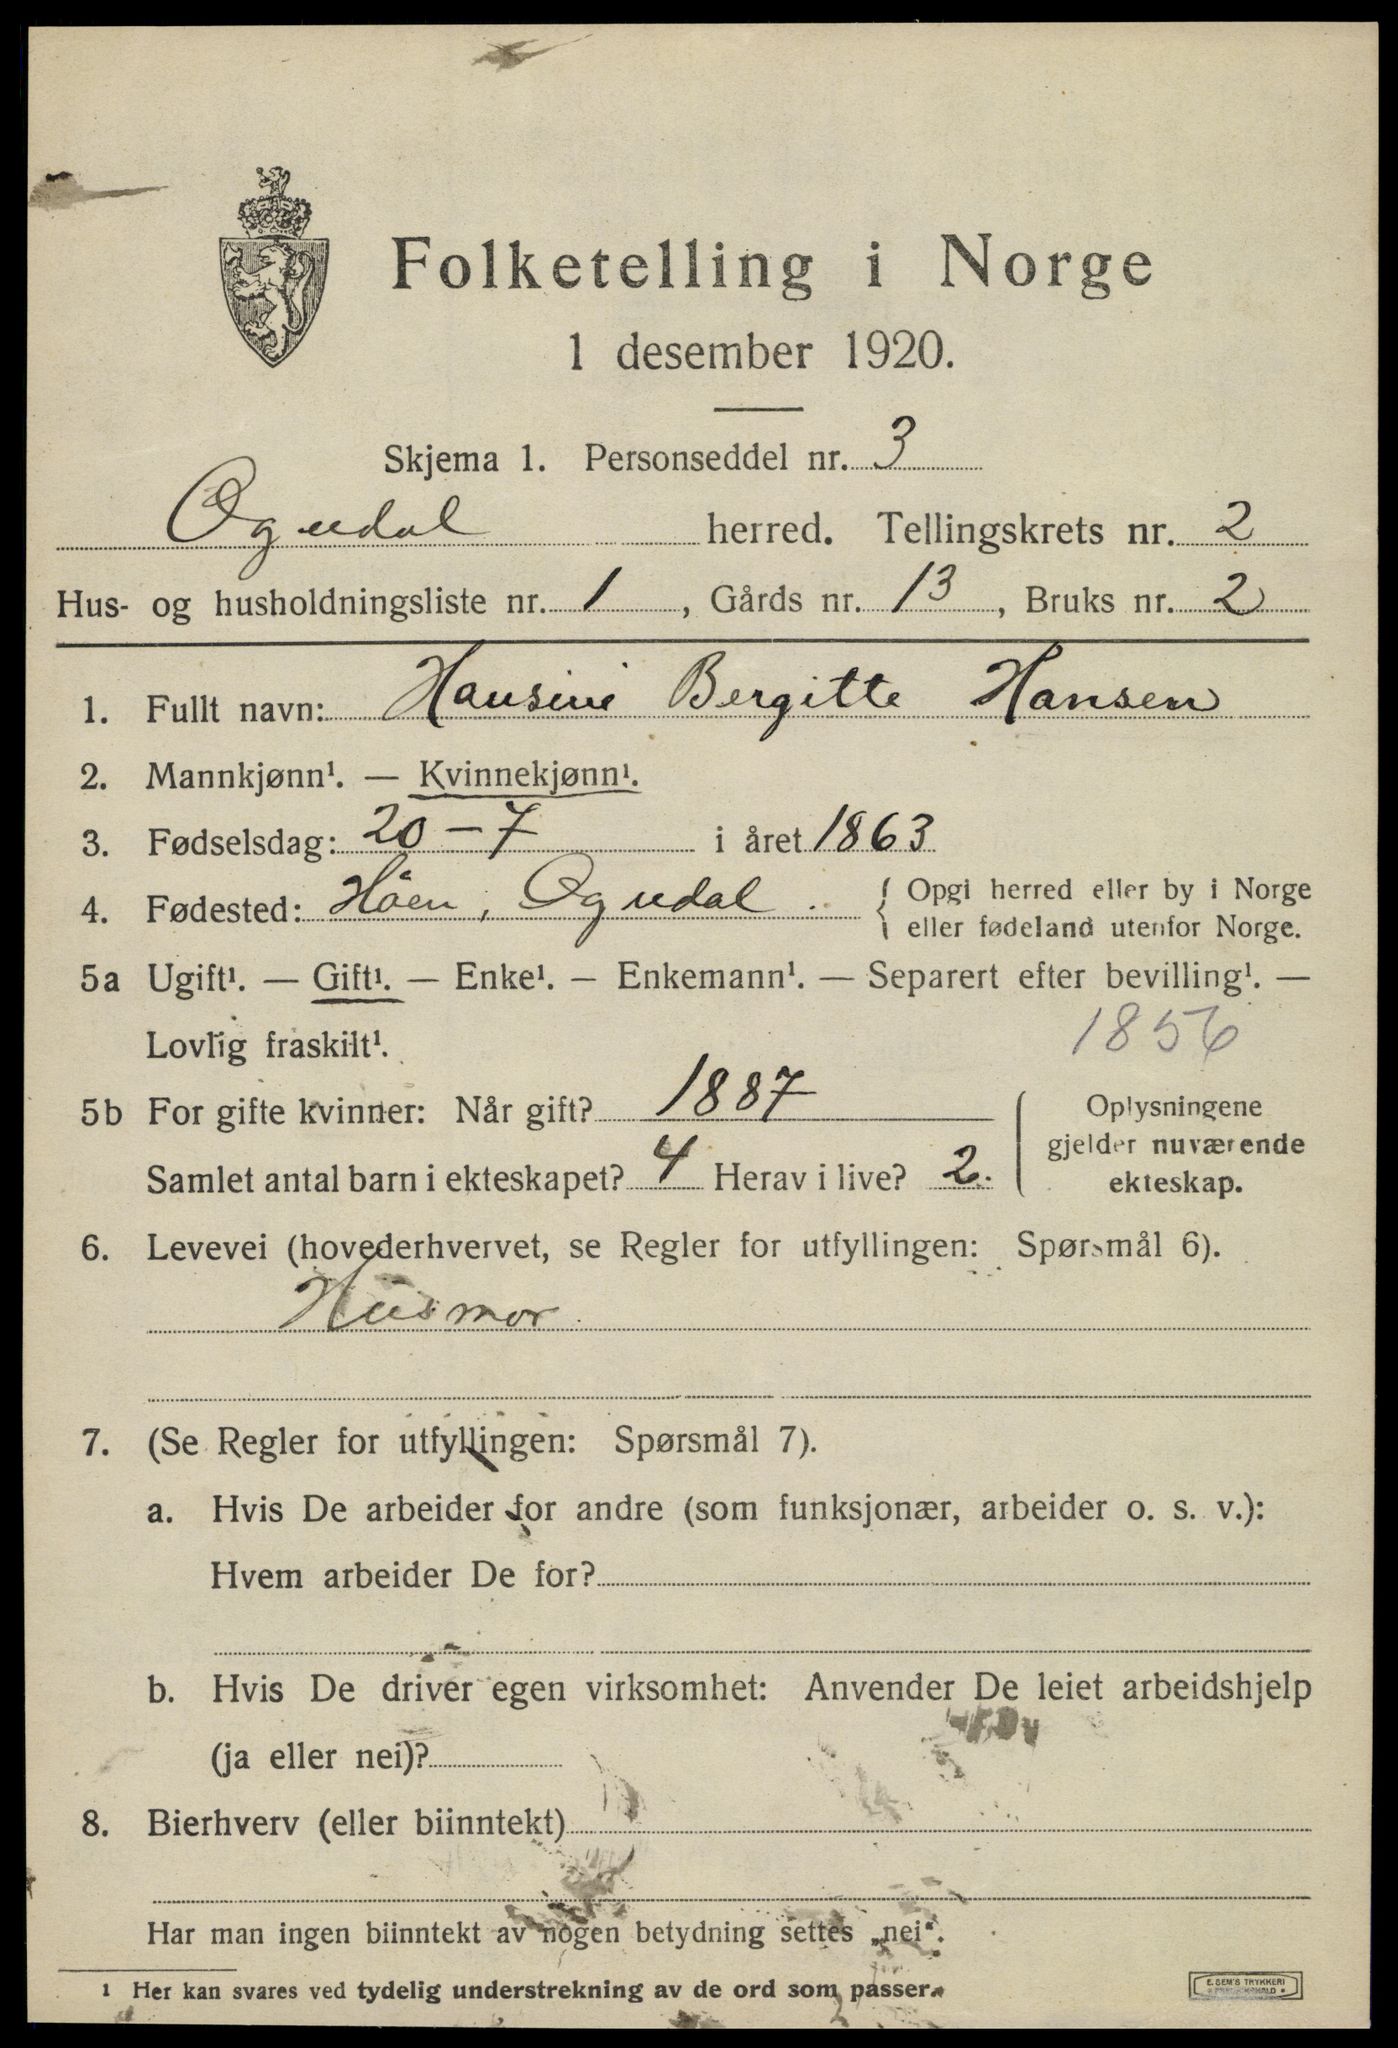 Folketelling i Norge
1 desember 1920.
Skjema 1. Personseddel nr. 3
Ogndal herred. Tellingskrets nr. 2
Hus- og husholdningsliste nr. 1, Gårds nr. 13, Bruks nr. 2
1. Fullt navn: Hansine Bergitte Hansen
2. Mannkjønn¹. — Kvinnekjønn¹.
3. Fødselsdag: 20 – 7 i året 1863
4. Fødested: Håen, Ogndal. { Opgi herred eller by i Norge
eller fødeland utenfor Norge.
5a Ugift¹. — Gift¹. — Enke¹. — Enkemann¹. — Separert efter bevilling¹. —
Lovlig fraskilt¹.
1856
5b For gifte kvinner: Når gift? 1887
Samlet antal barn i ekteskapet? 4 Herav i live? 2.
Oplysningene
gjelder nuværende
ekteskap.
6. Levevei (hovederhvervet, se Regler for utfyllingen: Spørsmål 6).
Husmor.
7. (Se Regler for utfyllingen: Spørsmål 7).
a. Hvis De arbeider for andre (som funksjonær, arbeider o. s. v.):
Hvem arbeider De for?
b. Hvis De driver egen virksomhet: Anvender De leiet arbeidshjelp
(ja eller nei)?
8. Bierhverv (eller biinntekt)
Har man ingen biinntekt av nogen betydning settes „nei“.
1 Her kan svares ved tydelig understrekning av de ord som passer.
E. SEM'S TRYKKERI
FREDRIKSHALD